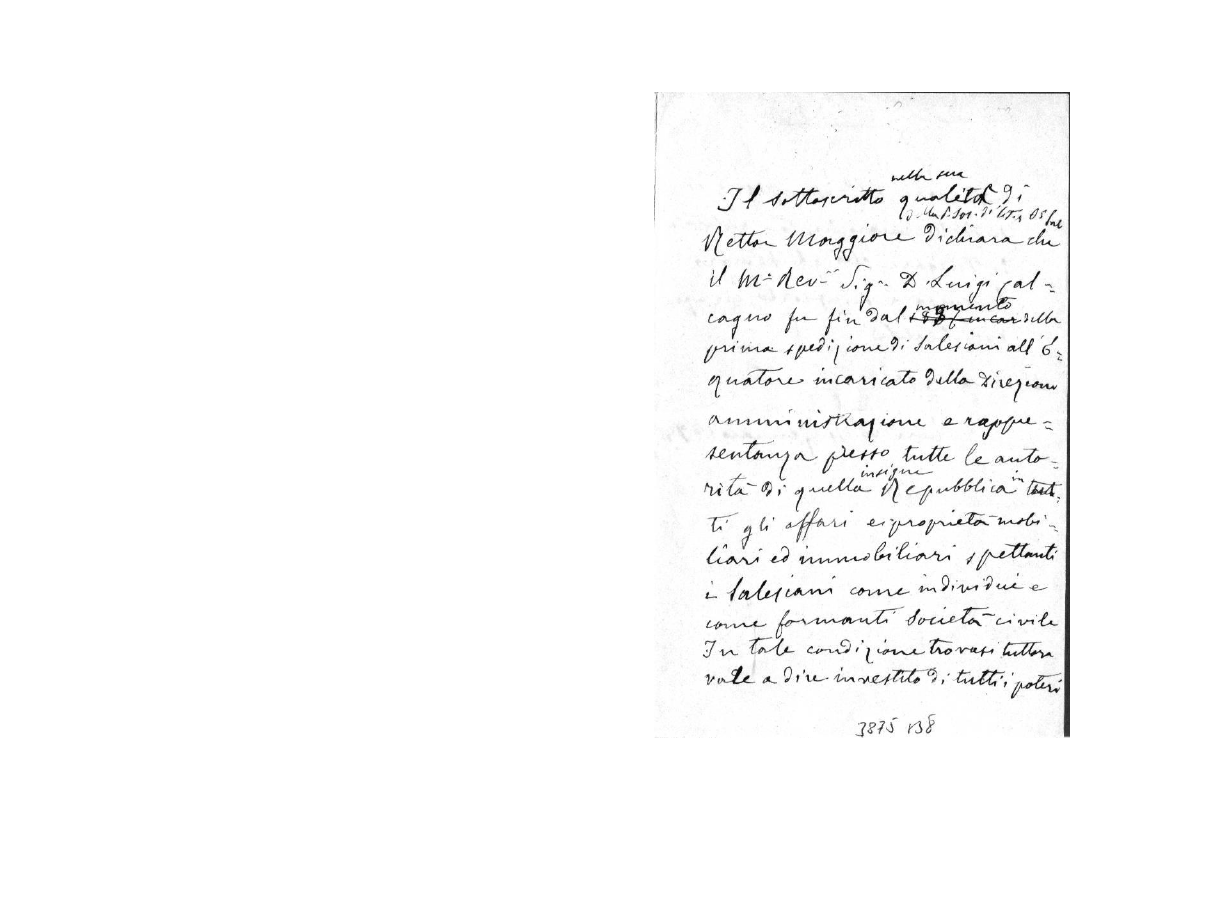 nella sua
Il sottoscritto qualità di
della P. Soc. di S. F. di Sal
Rettor Maggiore dichiara che
il M.º Rev.º Sig.r D. Luigi Cal=
momento
cagno fu fin dal della
prima spedizione di Salesiani all'E=
quatore incaricato della Direzione
amministrazione e rappre=
sentanza presso tutte le auto=
insigne
rità di quella Repubblica in tut=
ti gli affari e proprietà mobi=
liari ed immobiliari spettanti
ai Salesiani come individui e
come formanti Società civile
In tale condizione trovasi tuttora
vale a dire investito di tutti i poteri
3875 B8